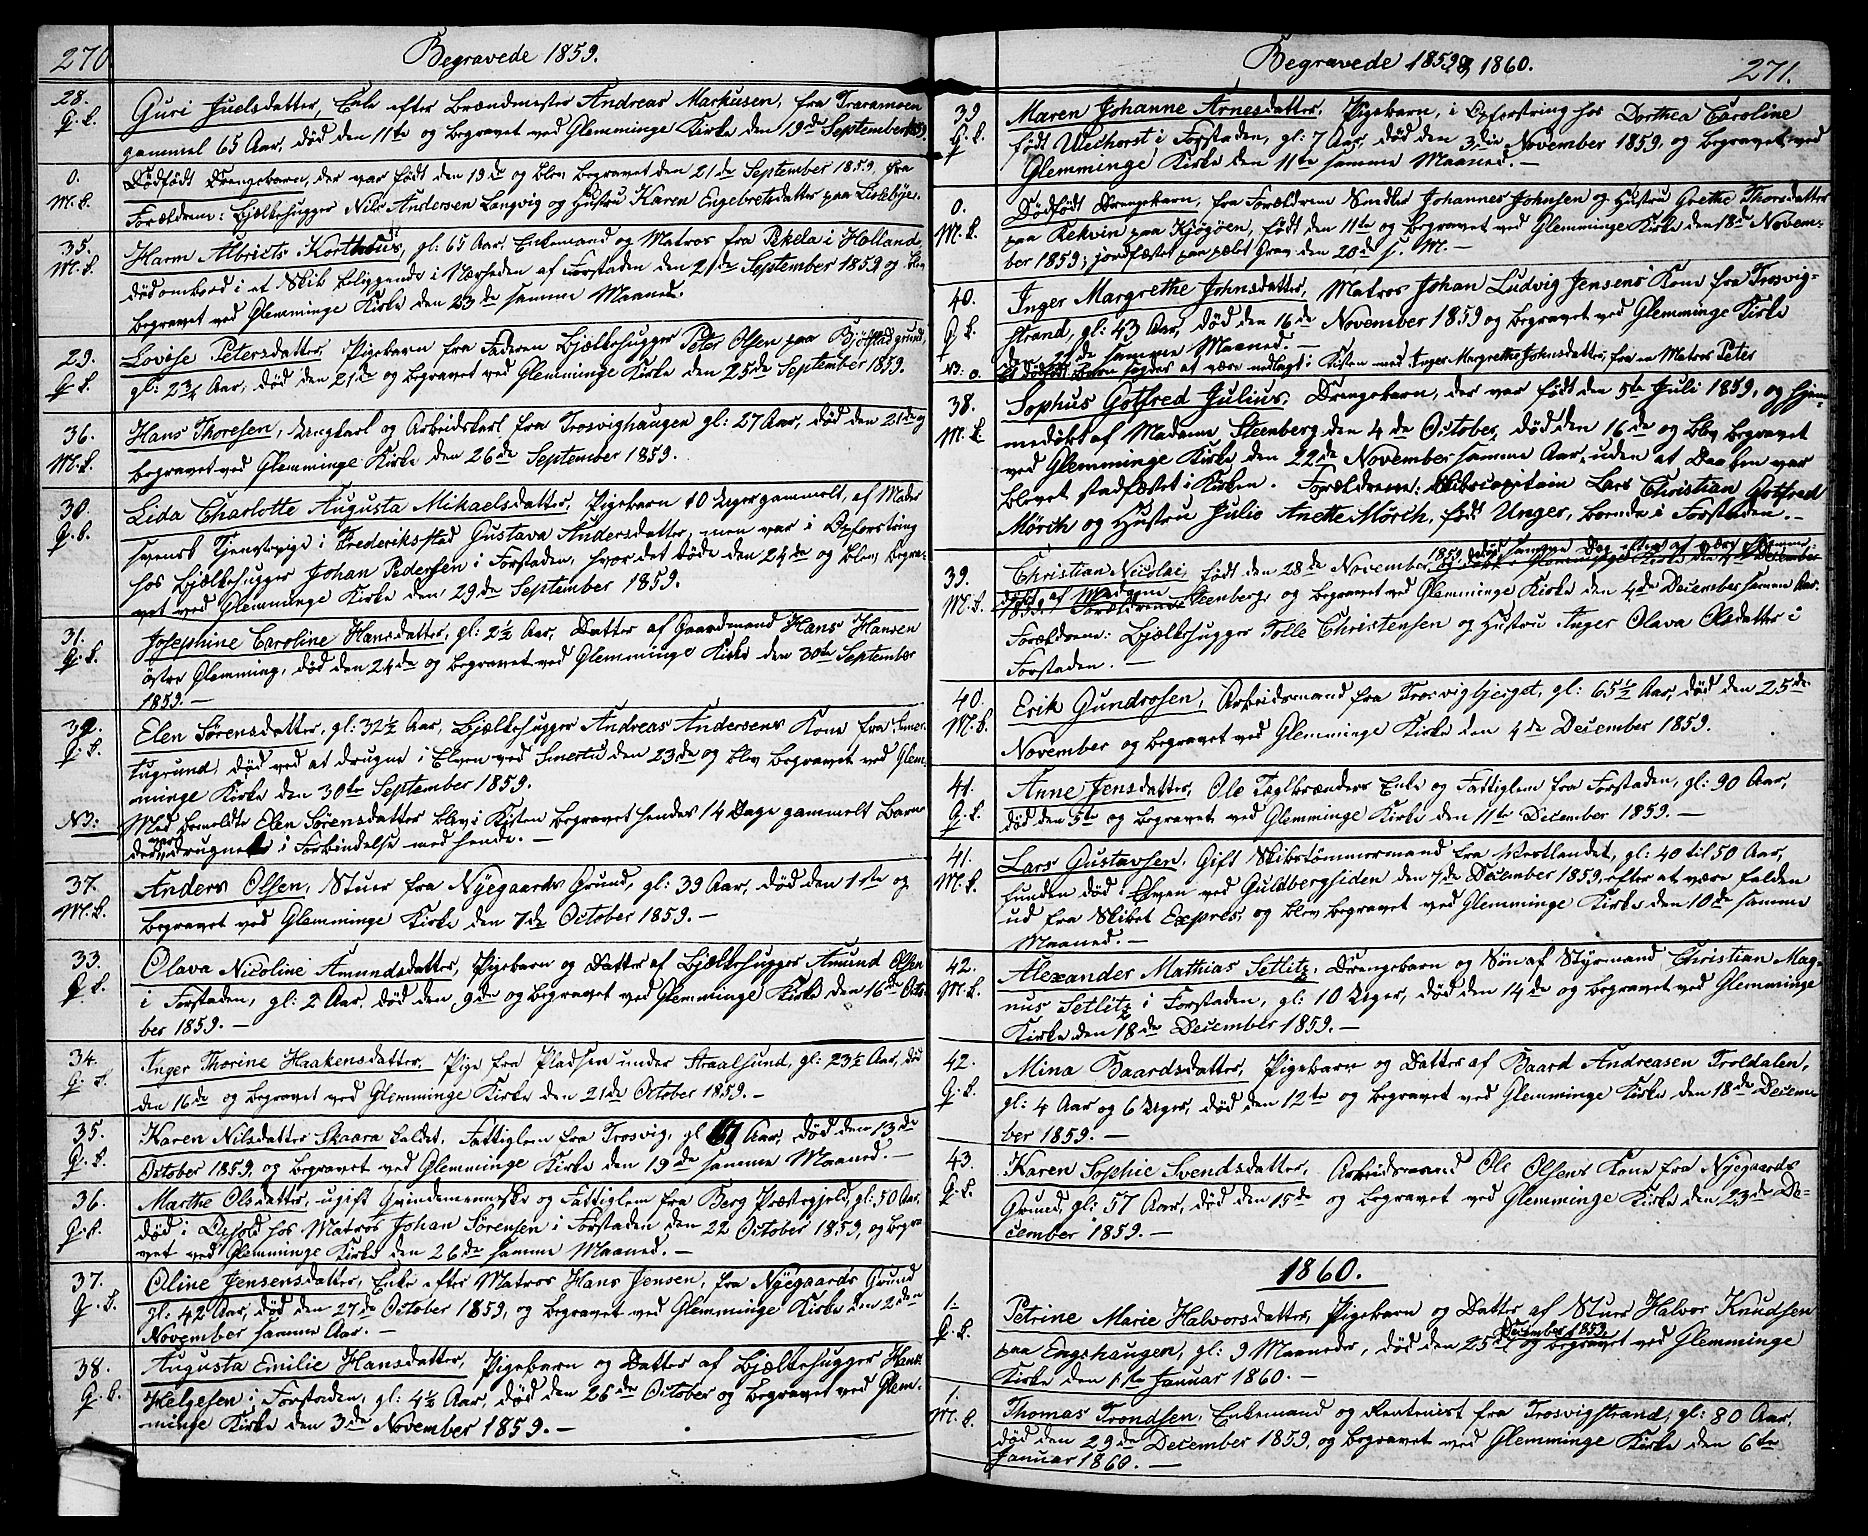 270 Begravede 1859.
28. Q. K. Guri Juelsdatter, Enke efter Brændmester Andreas Markusen, fra Traramoen
gammel 65 Aar, død den 11te og begravet ved Glemminge Kirke den 19de September 1859
0. M. K. Dødfødt Drengebarn, der var født den 19de og blev begravet den 21de September 1859, fra
Forældrene: Bjælkehugger Nils Andersen Langvig og Hustru Karen Engebretsdatter paa Lisleby.
35. M. K. Harm Albricts Korthous, gl: 65 Aar, Enkemand og Matros fra Pekela i Holland,
død ombord i et Skib beliggende i Nærheden af Forstaden den 21de September 1859 og blev
begravet ved Glemminge Kirke den 23de samme Maaned.
29. Q. K. Lovise Petersdatter, Pigebarn fra Faderen Bjælkehugger Peter Olsen paa Bjölstadgrund,
gl: 2¾ Aar, død den 21de og begravet ved Glemminge Kirke den 25de September 1859.
36. M. K. Hans Thoresen, Ungkarl og Arbeidskarl fra Trosvighaugen gl: 27 Aar, død den 21de og
begravet ved Glemminge Kirke den 26de September 1859.
30. Q. K. Lida Charlotte Augusta Mikaelsdatter, Pigebarn 10 Uger gammelt, af Moder
svensk Tjenstepige i Frederiksstad Gustava Andersdatter, men var i Opfostring
hos Bjælkehugger Johan Pedersen i Forstaden, hvor det døde den 24de og blev begra-
vet ved Glemminge Kirke den 29de September 1859.
31. Q. K. Josephine Caroline Hansdatter, gl: 2½ Aar, Datter af Gaardmand Hans Hansen
östre Glemming, død den 24de og begravet ved Glemminge Kirke den 30te September
1859. —
32. Q. K. Elen Sørensdatter, gl: 32½ Aar, Bjælkehugger Andreas Andersens Kone fra Smer-
tugrund, død ved at drugne i Elven ved Smertu den 23de og blev begravet ved Glem-
minge Kirke den 30te September 1859.
NB: Med bemeldte Elen Sørensdatter blev i Kisten begravet hendes 14 Dage gammelt Barn
der var drugnet i Forbindelse med hende. —
37. M. K. Anders Olsen, Stuer fra Nyegaards Grund, gl: 39 Aar, død den 1ste og
begravet ved Glemminge Kirke den 7de October 1859. —
33. Q. K. Olava Nicoline Amundsdatter, Pigebarn og Datter af Bjælkehugger Amund Olsen
i Forstaden, gl: 2 Aar, død den 9de og begravet ved Glemminge Kirke den 16de Octo-
ber 1859. —
34. Q. K. Inger Thorine Haakensdatter, Pige fra Pladsen under Straalsund, gl: 23½ Aar, død
den 16de og begravet ved Glemminge Kirke den 21de October 1859. —
35. Q. K. Karen Nilsdatter Skaara kaldet, Fattiglem fra Trosvig, gl Aar, død den 13de
October 1859, og begravet ved Glemminge Kirke den 19de samme Maaned. —
36. Q. K. Marthe Olsdatter, ugift Qvindemenneske og Fattiglem fra Berg Præstegjeld, gl: 50 Aar,
død i Ophold hos Matros Johan Sørensen i Forstaden den 22 October 1859, og begra-
vet ved Glemminge Kirke den 26de samme Maaned. —
37. Q. K. Oline Jensensdatter, Enke efter Matros Hans Jensen, fra Nyegaards Grund
gl: 42 Aar, død den 27de October 1859, og begravet ved Glemminge Kirke den 2den
November samme Aar. —
38. Q. K. Augusta Emilie Hansdatter, Pigebarn og Datter af Bjælkehugger Hans
Helgesen i Forstaden, gl: 4½ Aar, død den 26de October og begravet ved Glem-
minge Kirke den 3de November 1859. —
Begravede 1859 & 1860. 271.
39 Q. K. Maren Johanne Arnesdatter, Pigebarn, i Opfostring hos Dorthea Caroline
født Wichorst i Forstaden, gl: 7 Aar, død den 3die November 1859, og begravet ved
Glemminge Kirke den 11te samme Maaned. —
0. M. K. Dødfødt Drengebarn, fra Forældrene Snedker Johannes Johnsen og Hustru Grethe Thorsdatter
paa Rekvin paa Kjøgöen, født den 11te og begravet ved Glemminge Kirke den 18de Novem-
ber 1859; jordfæstet paa Grav den 20de s. M. —
40. Q. K. Inger Margrethe Johnsdatter, Matros Johan Ludvig Jensens Kone fra Trosvig-
strand, gl: 43 Aar, død den 16de November 1859 og begravet ved Glemminge Kirke
den 22de samme Maaned. —
NB. 0. Et dødfødt Barn sagdes at være nedlagt i Kisten med Inger Margrethe Johnsdatter, fra en Matros Peter
38. M. K. Sophus Gotfred Julius, Drengebarn, der var født den 5te Juli 1859, og hjem-
medøbt af Madame Steenberg den 4de October, død den 16de og blev begravet
ved Glemminge Kirke den 22de November samme Aar, uden at Daaben var
blevet stadfæstet i Kirken. Forældrene: Skibscapitain Lars Christian Gotfred
Mörch og Hustru Julie Anette Mörch, født Unger, boende i Forstaden. —
39. M. K. Christian Nicolai, født den 28de November 1859, død samme Dag efter at være hjemme-
døbt af Madame Steenberg, og begravet ved Glemminge Kirke den 4de December samme Aar.
Forældrene: Bjælkehugger Tolle Christensen og Hustru Inger Olava Olsdatter i
Forstaden. —
40. M. K. Erik Gundrosen, Arbeidsmand fra Trosvigbjerget, gl: 65½ Aar, død den 25de
November og begravet ved Glemminge Kirke den 4de December 1859.
41. Q. K. Anne Jensdatter, Ole Teglbrænders Enke og Fattiglem fra Forstaden, gl: 90 Aar,
død den 5te og begravet ved Glemminge Kirke den 11te December 1859. —
41. M. K. Lars Gustavsen, Gift Skibstömmermand fra Vestlandet, gl: 40 til 50 Aar,
funden død i Elven ved Guldbergsiden den 7de December 1859, efter at være falden
ud fra Skibet Expres, og blev begravet ved Glemminge Kirke den 10de samme
Maaned. —
42. M. K. Alexander Mathias Setlitz, Drengebarn og Søn af Styrmand Christian Mag-
nus Setlitz i Forstaden, gl: 10 Uger, død den 14de og begravet ved Glemminge
Kirke den 18de December 1859. —
42. Q. K. Mina Baardsdatter, Pigebarn og Datter af Baard Andreasen Troldalen,
gl: 4 Aar og 6 Uger, død den 12te og begravet ved Glemminge Kirke den 18de Decem-
ber 1859. —
43. Q. K. Karen Sophie Svendsdatter, Arbeidsmand Ole Olsens Kone fra Nyegaards
Grund, gl: 57 Aar, død den 15de og begravet ved Glemminge Kirke den 23de De-
cember 1859. —
1860.
1. Q. K. Petrine Marie Halvorsdatter, Pigebarn og Datter af Stuer Halvor Knudsen
paa Engshaugen, gl: 9 Maaneder, død den 25de December 1859 og begravet ved Glemminge
Kirke den 1ste Januar 1860. —
1. M. K. Thomas Trondsen, Enkemand og Rentenist fra Trosvigstrand, gl: 80 Aar,
død den 29de December 1859, og begravet ved Glemminge Kirke den 6te
Januar 1860. —